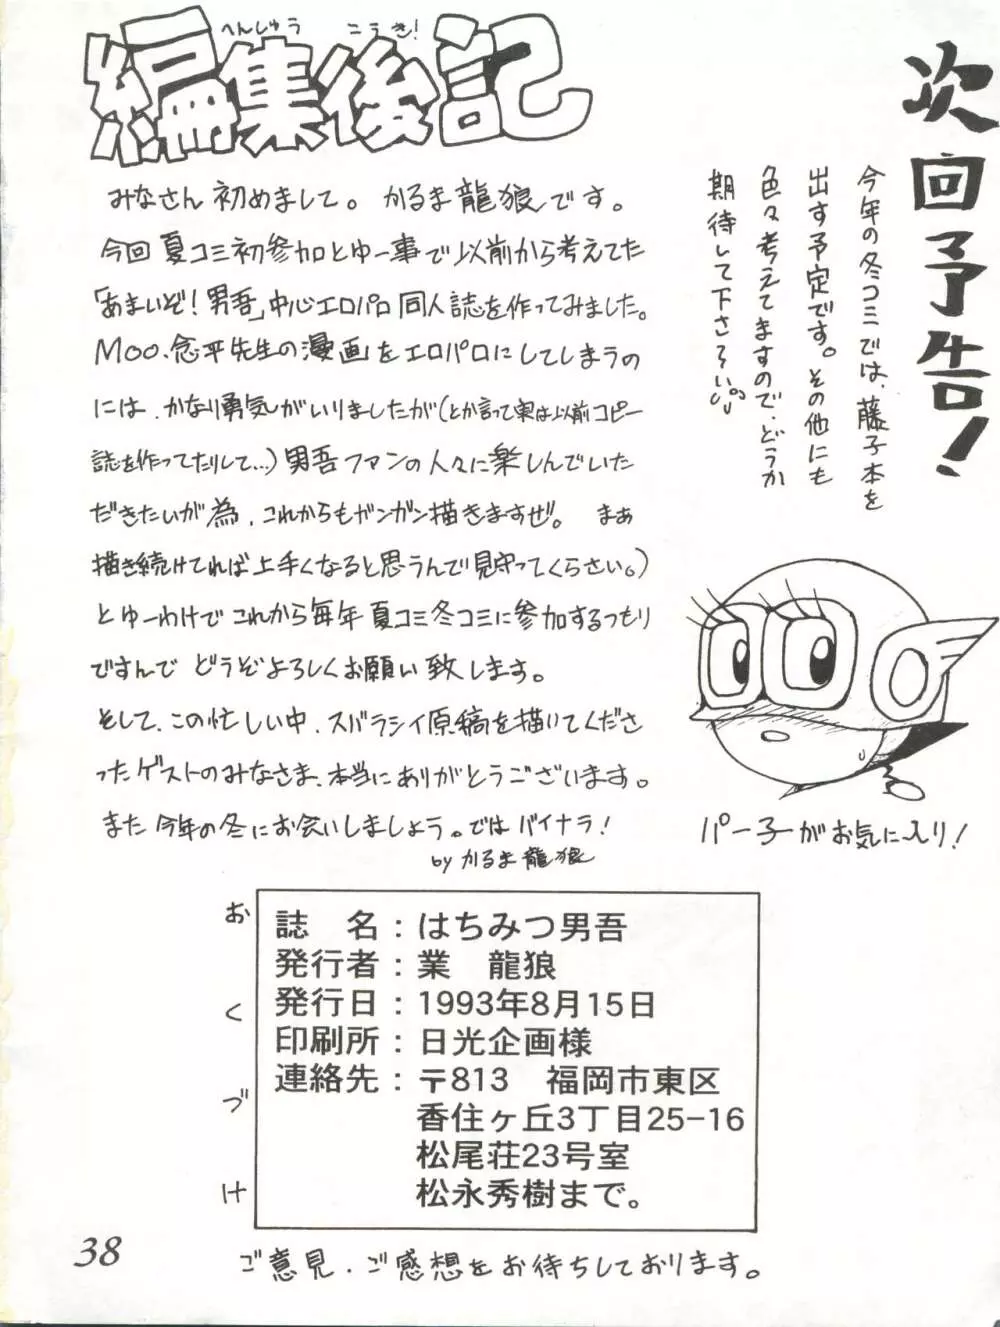 次回予告!
今年の冬コミでは、藤子本を
出す予定です。その他にも
色々考えてますので、どうか
期待して下さろい。
へんしゅう こうき!
編集後記
みなさん初めまして。かるま龍狼です。
今回夏コミ初参加とゆー事で以前から考えてた
「あまいぞ!男吾」中心エロパロ同人誌を作ってみました。
Moo.念平先生の漫画」をエロパロにしてしまうの
には、かなり勇気がいりましたが(とか言って実は以前コピー
誌を作ってたりして…)男吾ファンの人々に楽しんでいた
だきたいが為、これからもガンガン描きますぜ。まぁ
描き続けてれば上手くなると思うんで見守ってくらさい。)
とゆーわけでこれから毎年夏コミ冬コミに参加するつもり
ですんでどうぞよろしくお願い致します。
そして、この忙しい中、スバラシイ原稿を描いてくださ
ったゲストのみなさま、本当にありがとうございます。
また今年の冬にお会いしましょう。ではバイナラ!
by かるま龍狼
パー子がお気に入り!
おくづけ
誌 名:はちみつ男吾
発行者:業 龍狼
発行日:1993年8月15日
印刷所:日光企画様
連絡先:〒813 福岡市東区
香住ヶ丘3丁目25-16
松尾荘23号室
松永秀樹まで。
ご意見、ご感想をお待ちしております。
38